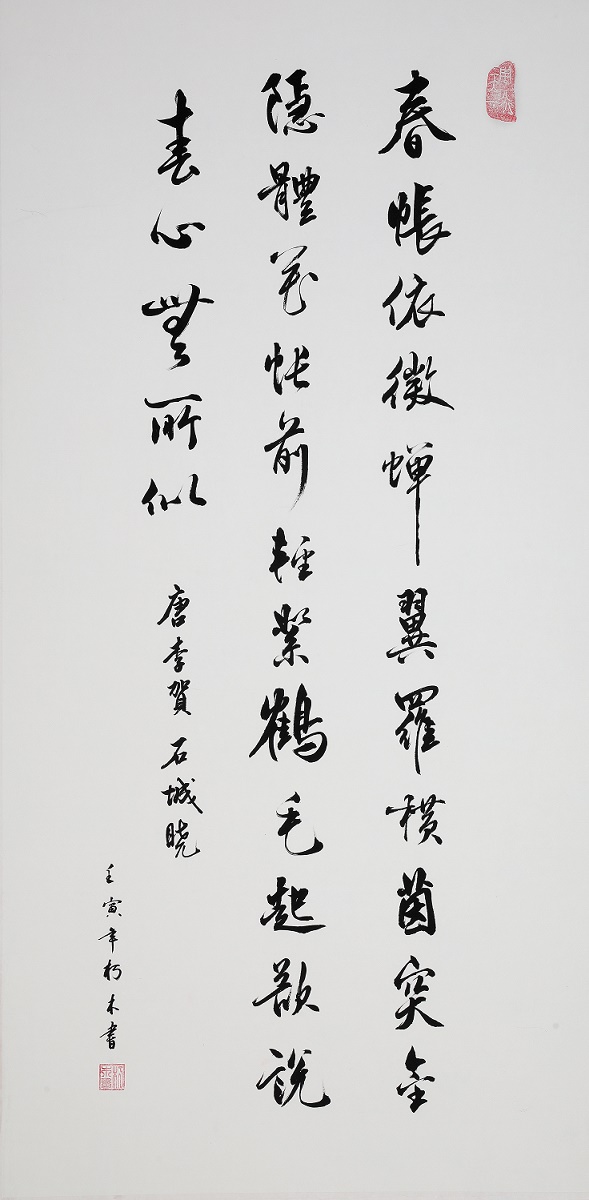 春帳依微蟬翼羅橫茵突金
隱體花帳前輕絮鶴毛起欲說
春心無所似 唐李賀 石城曉
壬寅年朽木書